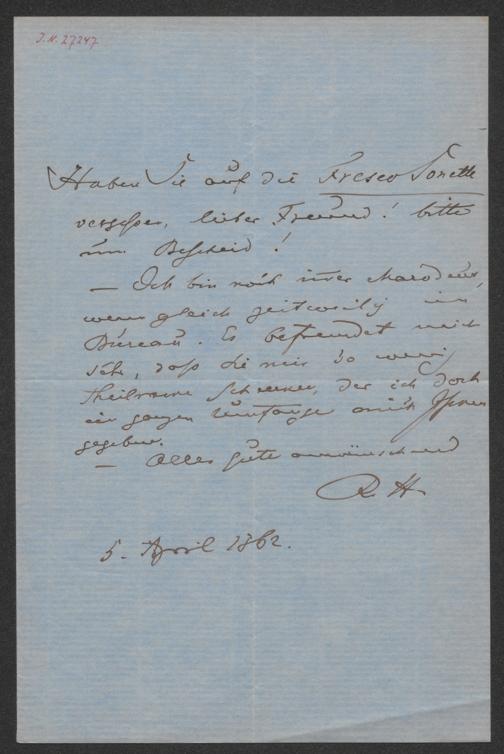 I.N. 27247
Haben Sie auf die Fresco Sonette
vergessen, lieber Freund! bitte
um Bescheid!
— Ich bin noch immer Marodeur,
wenn gleich zeitweilig im
Bureau. Es befremdet mich
sehr, daß Sie mir so wenig
Theilname schenken, der ich doch
im ganzen Umfange mich Ihnen
gegeben.
— Alles Gute anwünschend
R H
5. April 1862.